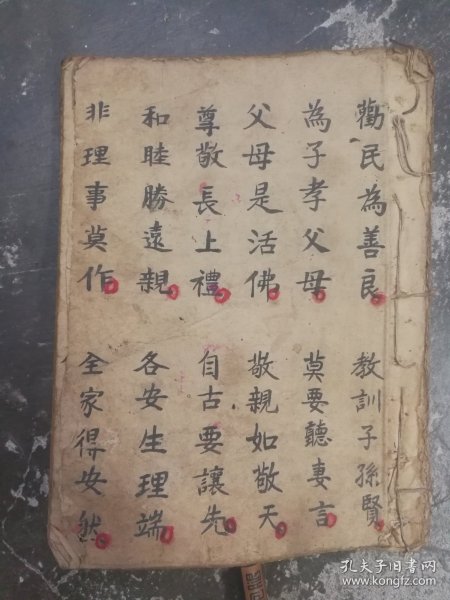 勸民為善良 教訓子孫賢
為子孝父母 莫要聽妻言
父母是活佛 敬親如敬天
尊敬長上禮 自古要讓先
和睦勝遠親 各安生理端
非理事莫作 全家得安然
孔夫子旧书网
www.kongfz.com